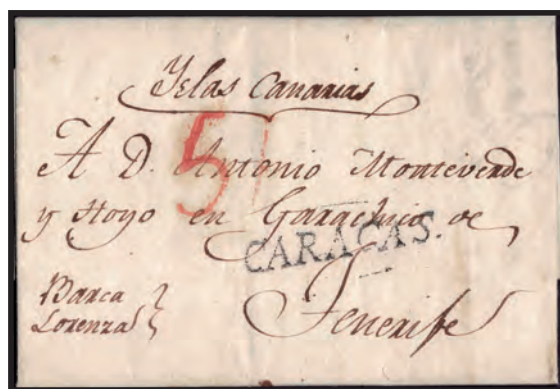 Yslas Canarias
5
A D. Antonio Monteverde
y Hoyo en Garachico de
CARACAS.
Barca
Lorenza
Tenerife